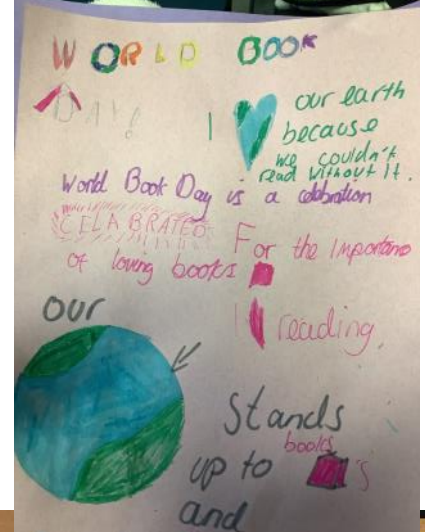 WORLD BOOK
DAY!
I our earth
because
we couldn't
read without it.
World Book Day is a celebration
CELABRATED For the importano
of loving books
I reading.
our
Stands
books
up to 's
and